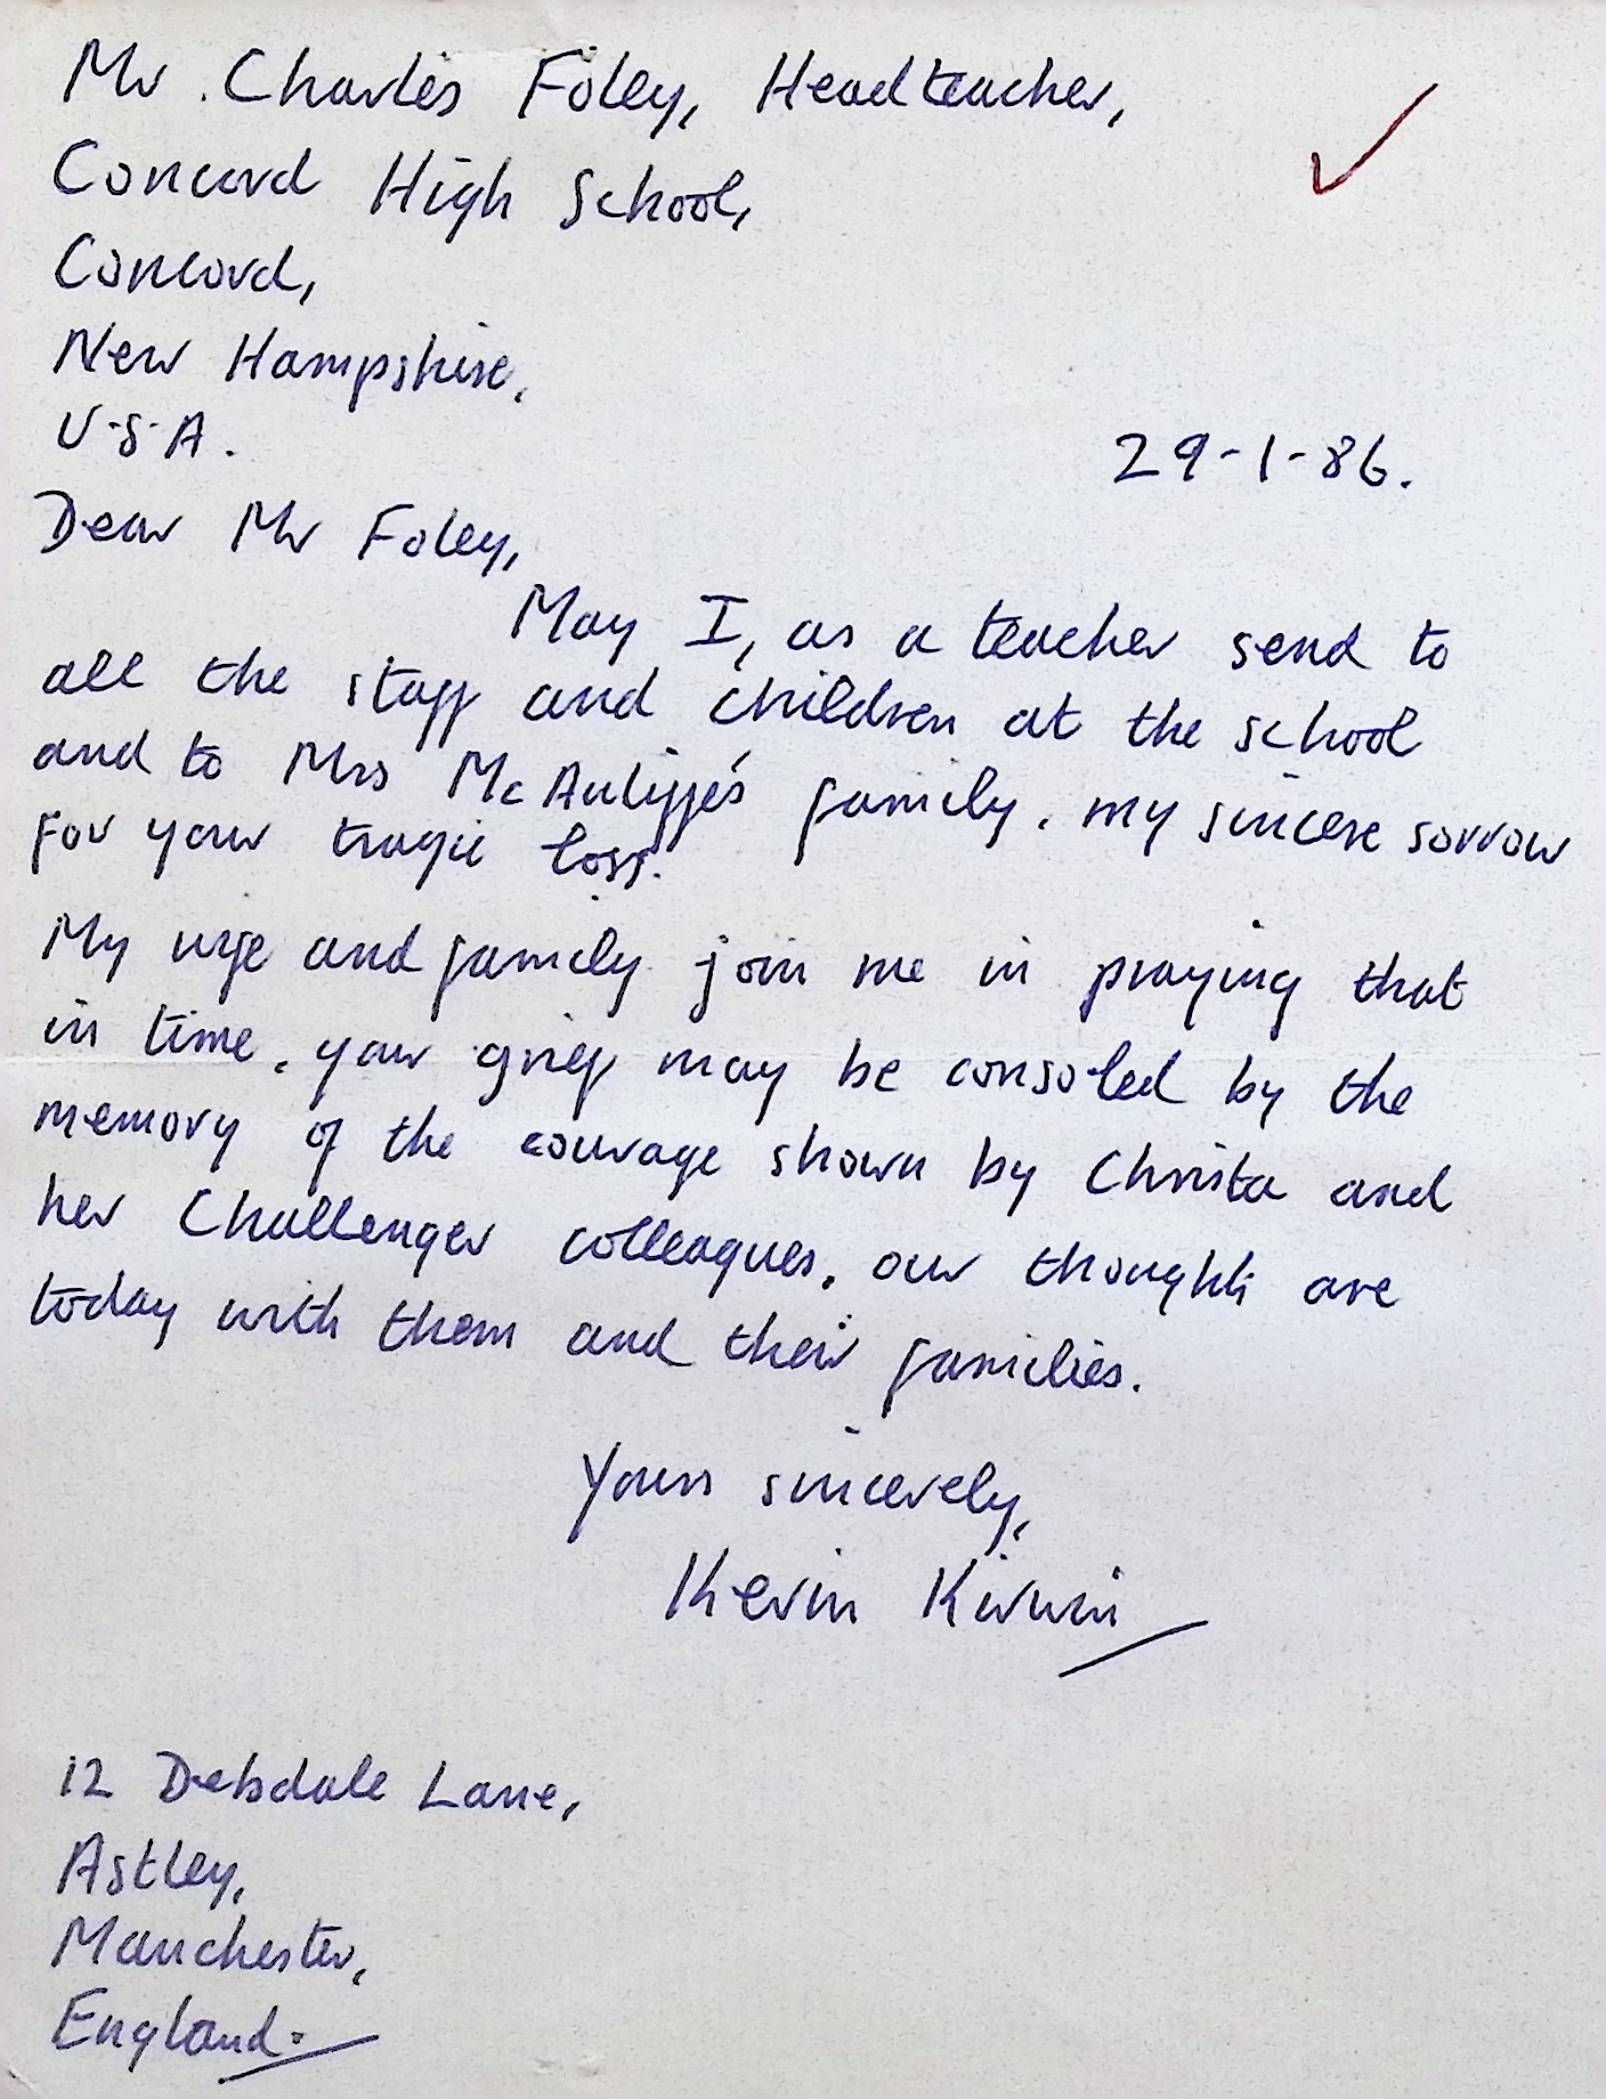 Mr. Charles Foley, Headteacher,
Concord High School,
Concord,
New Hampshire,
U.S.A.
29-1-86.
Dear Mr Foley,
May I, as a teacher send to
all the staff and children at the school
and to Mrs McAuliffe's family, my sincere sorrow
for your tragic loss.
My wife and family join me in praying that
in time, your grief may be consoled by the
memory of the courage shown by Christa and
her Challenger colleagues. our thoughts are
today with them and their families.
Yours sincerely,
Kevin Kirwin
12 Debdale Lane,
Astley,
Manchester,
England.